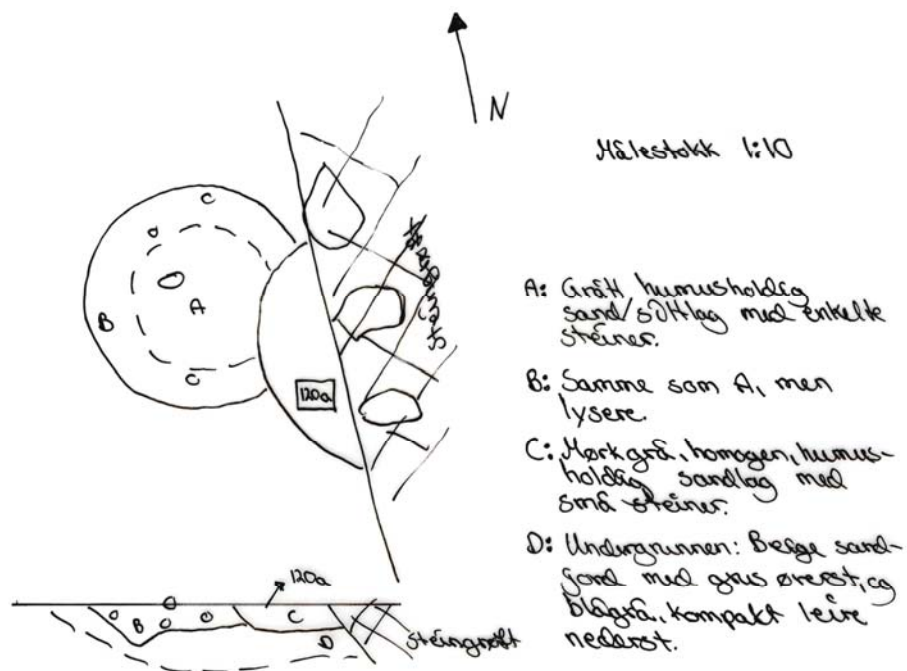 N
Målestokk 1:10
C
A
B
C
120a
Steingrøft
A: Grått humusholdig
sand/siltlag med enkelte
steiner.
B: Samme som A, men
lysere.
C: Mørk grå, homogen, humus-
holdig sandlag med
små steiner.
D: Undergrunnen: Beige sand-
jord med grus øverst, og
blågrå, kompakt leire
nederst.
120a
B
C
D
steingrøft